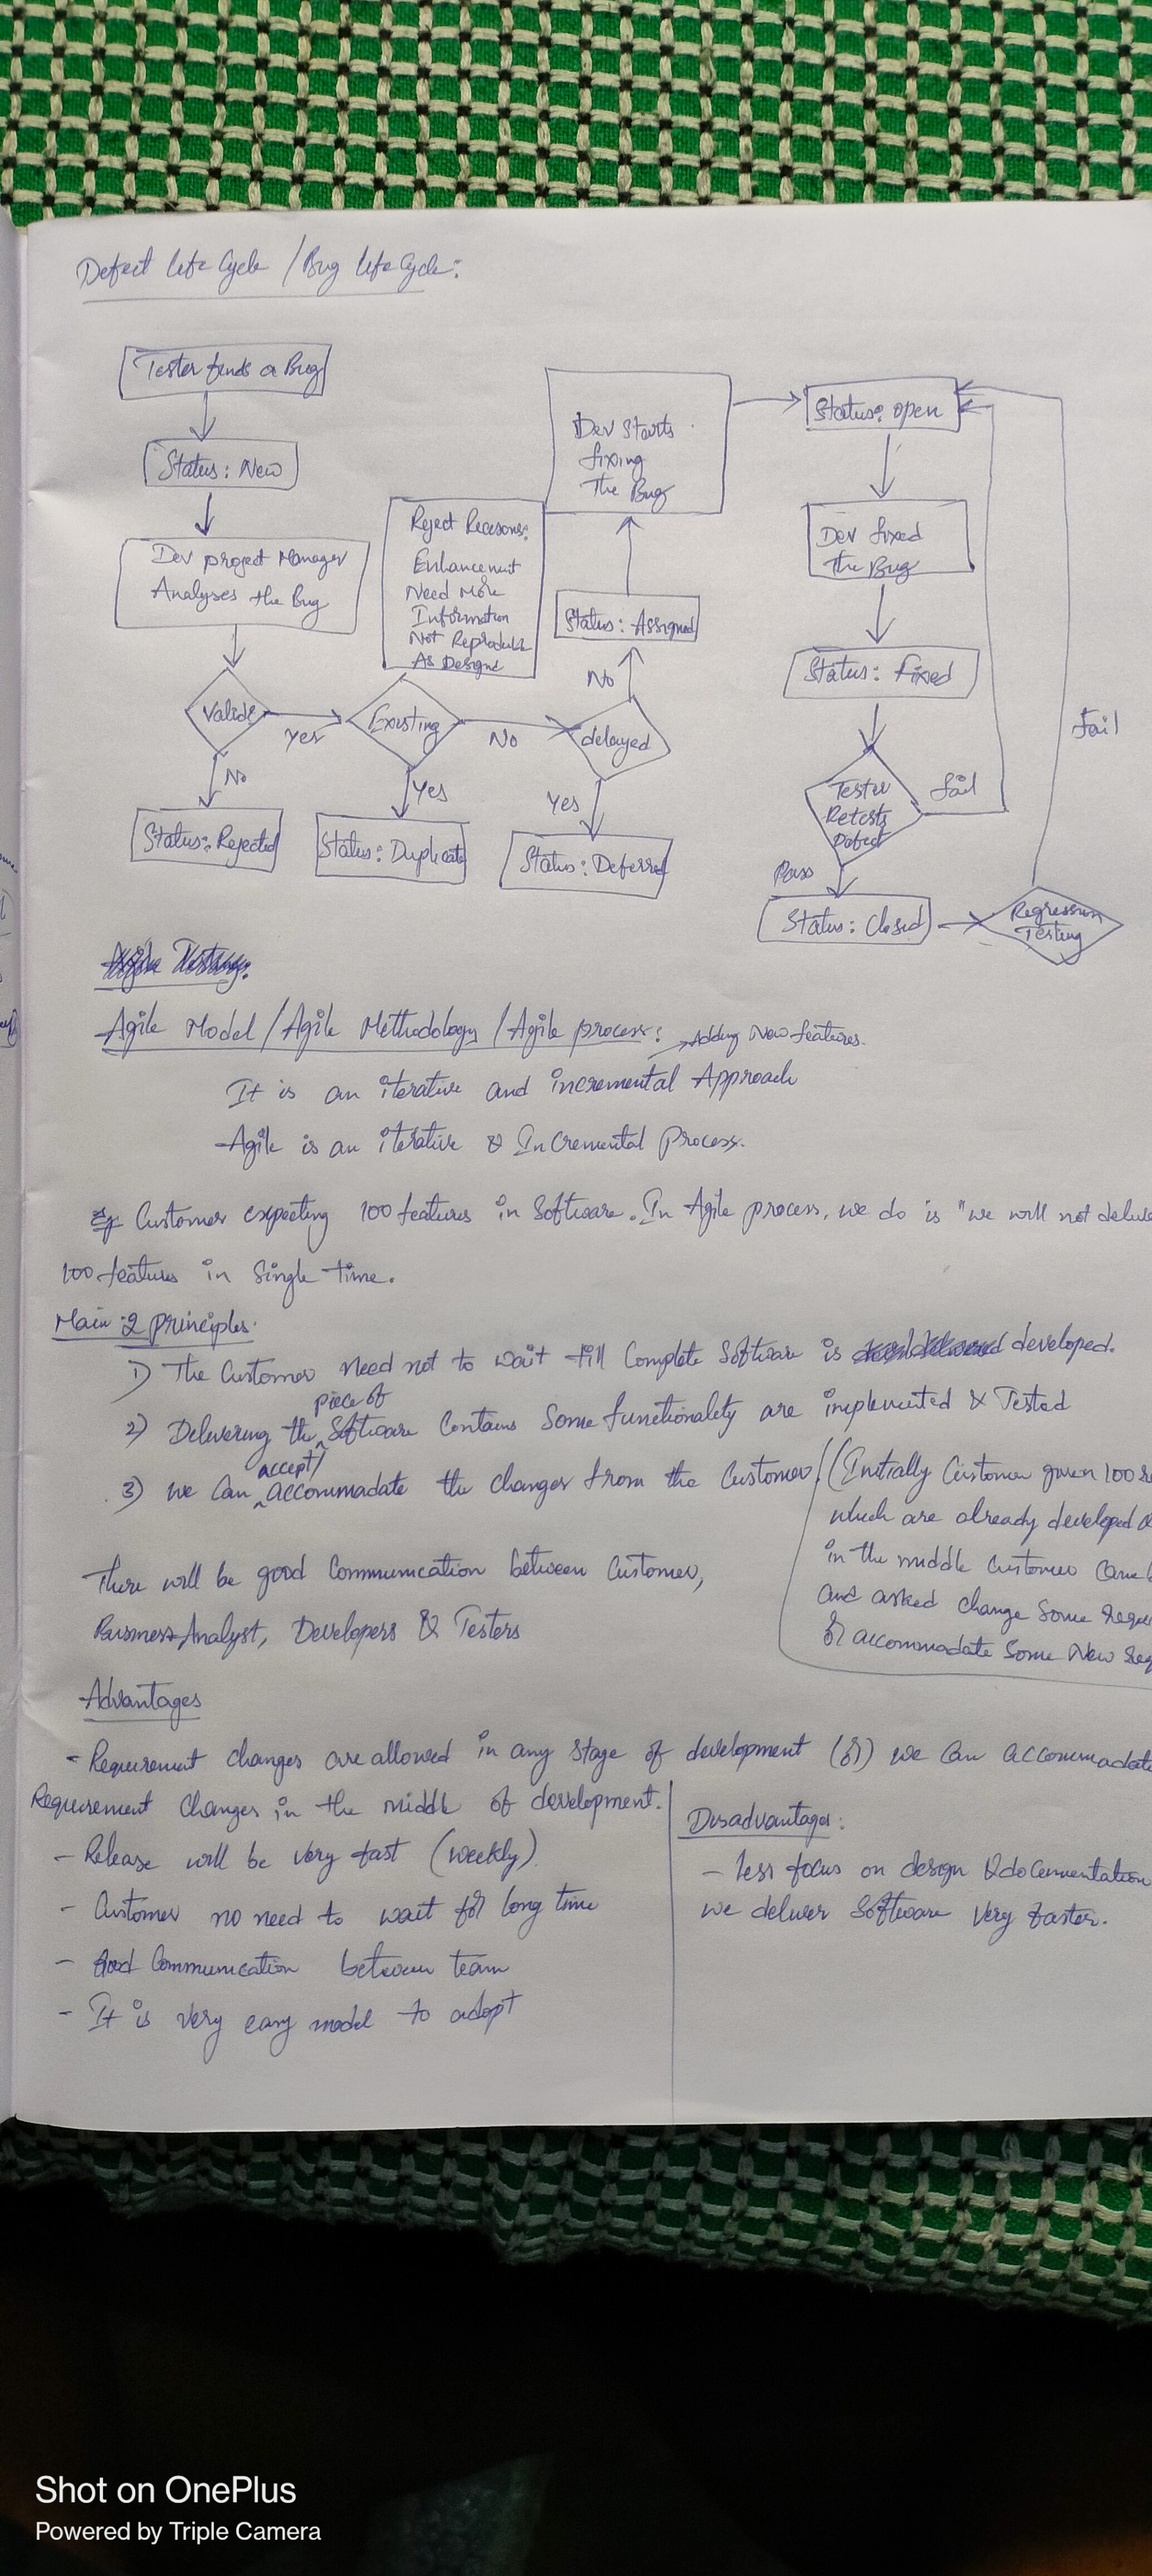 Defect Life Cycle / Bug Life Cycle:
Tester finds a Bug
Status: New
Dev project Manager
Analyses the Bug
Valid?
Yes
No
Status: Rejected
Existing
Yes
No
Status: Duplicate
Reject Reasons:
Enhancement
Need More
Information
Not Reproducible
As Designed
delayed
Yes
No
Status: Deferred
Status: Assigned
Dev Starts
fixing
The Bug
Status: open
Dev fixed
The Bug
Status: Fixed
Tester
Retests
Defect
fail
Pass
Status: Closed
Regression
Testing
fail
Agile Model / Agile Methodology / Agile process:
Adding New features.
It is an iterative and incremental Approach
Agile is an iterative & Incremental Process.
Eg Customer expecting 100 features in Software. In Agile process, we do is "we will not
100 features in Single time.
Main 2 principles.
1) The Customer need not to wait till Complete Software is developed.
2) Delivering the piece of Software Contains Some functionality are implemented & Tested
3) we Can accept/ accommadate the changes from the Customer. (Initially Customer given 100
which are already developed
in the middle Customer
and asked change Some
or accommadate Some New
There will be good Communication between Customer,
Business Analyst, Developers & Testers
Advantages
- Requirement changes are allowed in any stage of development (or) we Can accommadate
Requirement Changes in the middle of development.
- Release will be very fast (weekly)
- Customer no need to wait for long time
- Good Communication between team
- It is very easy model to adopt
Disadvantages:
- Less focus on design & documentation
we deliver Software very faster.
Shot on OnePlus
Powered by Triple Camera